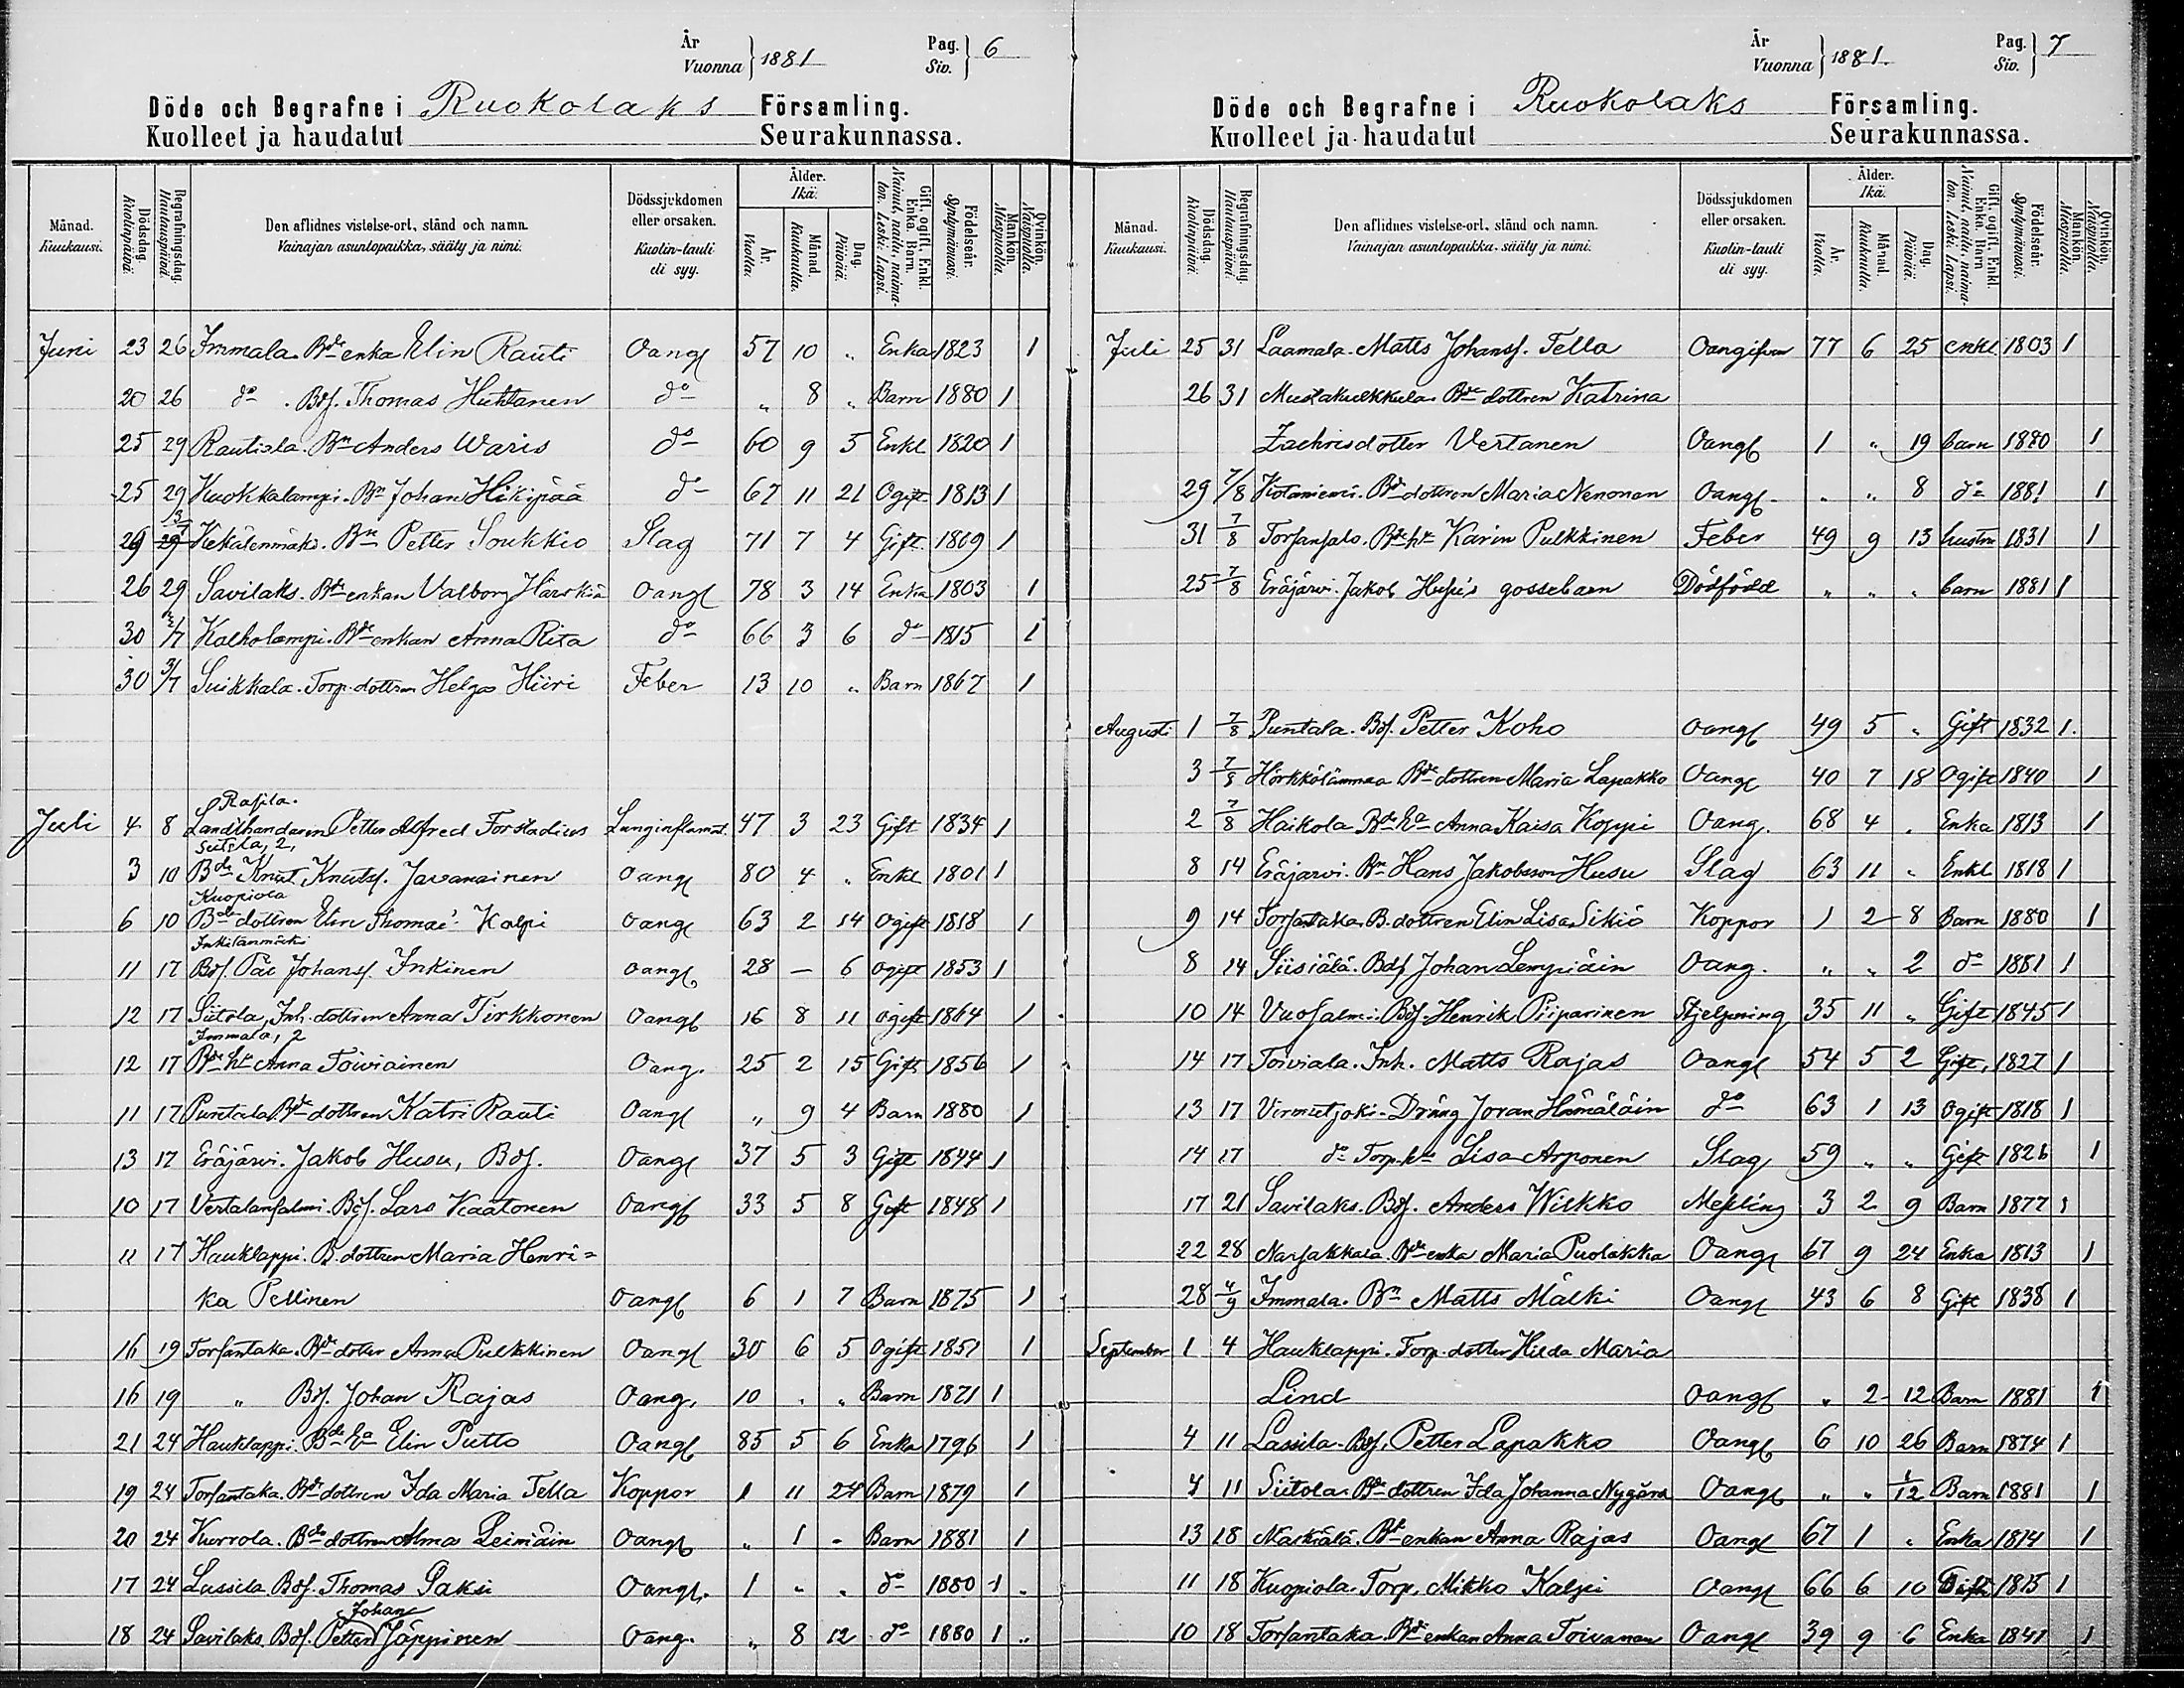 År
Vuonna } 1881
Pag.
Siv. } 6
Döde och Begrafne i Ruokolaks Församling.
Kuolleet ja haudatut Seurakunnassa.
Månad. Kuukausi.
Dödsdag. Kuolinpäivä.
Begrafningsdag. Hautauspäivä.
Den aflidnes vistelse-ort, stånd och namn.
Vainajan asuntopaikka, sääty ja nimi.
Dödssjukdomen eller orsaken.
Kuolin-tauti eli syy.
Ålder. Ikä.
År. Vuotta.
Månad. Kuukautta.
Dag. Päivää.
Gift, ogift, Enkl. Enka. Barn.
Nainut, naitu, naimaton. Leski. Lapsi.
Födelseår. Syntymävuosi.
Mankön. Miespuolta.
Qvinkön. Naispuolta.
Juni 23 26 Immala. Bde enka Elin Rauti Oangf 57 10 „ Enka 1823 1
20 26 do . Bdf. Thomas Huhtanen do „ 8 „ Barn 1880 1
25 29 Rautiala. Bn Anders Waris do 60 9 5 Enkl 1820 1
25 29 Kuokkalampi. Bn Johan Hikipää do 67 11 21 Ogift 1813 1
29 13/7 Kekälenmäki. Bn Petter Soukkio Slag 71 7 4 Gift 1809 1
26 29 Savilaks. Bde enkan Valborg Härskiä Oangf 78 3 14 Enka 1803 1
30 2/7 Kalholampi. Bde enkan Anna Rita do 66 3 6 do 1815 1
30 3/7 Suikkala. Torp. dottren Helga Hiiri Feber 13 10 „ Barn 1867 1
Rasila.
Juli 4 8 Landthandaren Petter Alfred Forstadius Lunginflamat. 47 3 23 Gift 1834 1
Siitola, 2,
3 10 Bde Knut Knutsf. Javanainen Oangf 80 4 „ Enkl 1801 1
Kuopiola
6 10 Bde dottren Elin Thomaé Kalpi Oangf 63 2 14 Ogift 1818 1
Inkilänmäki
11 17 Bdf. Pål Johansf. Inkinen Oangf 28 – 6 Ogift 1853 1
12 17 Siitola, Inh. dottren Anna Tirkkonen Oangf 16 8 11 Ogift 1864 1
Immala, 2
12 17 Bde hu Anna Toiviainen Oang. 25 2 15 Gift 1856 1
11 17 Puntala Bde dottren Katri Rauti Oangf „ 9 4 Barn 1880 1
13 17 Eräjärvi. Jakob Husu, Bdf. Oangf 37 5 3 Gift 1844 1
10 17 Vertalansalmi. Bdf. Lars Kaatonen Oangf 33 5 8 Gift 1848 1
11 17 Hauklappi. B dottren Maria Henri=
ka Pellinen Oangf 6 1 7 Barn 1875 1
16 19 Torsantaka. Bde dotter Anna Pulkkinen Oangf 30 6 5 Ogift 1851 1
16 19 „ Bdf. Johan Rajas Oang. 10 „ „ Barn 1871 1
21 24 Hauklappi. Bde Ea Elin Putto Oangf 85 5 6 Enka 1796 1
19 24 Torsantaka. Bde dottren Ida Maria Tella Koppor 1 11 24 Barn 1879 1
20 24 Kurrola. Bde dottren Alma Leiniäin Oangf „ 1 – Barn 1881 1
17 24 Lassila Bdf. Thomas Saksi Oangf. 1 „ „ do 1880 1
Johan
18 24 Savilaks Bdf. Petter Jäppinen Oang. „ 8 12 do 1880 1
År
Vuonna } 1881.
Pag.
Siv. } 7
Döde och Begrafne i Ruokolaks Församling.
Kuolleet ja haudatut Seurakunnassa.
Månad. Kuukausi.
Dödsdag. Kuolinpäivä.
Begrafningsdag. Hautauspäivä.
Den aflidnes vistelse-ort, stånd och namn.
Vainajan asuntopaikka, sääty ja nimi.
Dödssjukdomen eller orsaken.
Kuolin-tauti eli syy.
Ålder. Ikä.
År. Vuotta.
Månad. Kuukautta.
Dag. Päivää.
Gift, ogift, Enkl. Enka. Barn
Nainut, naitu, naimaton. Leski. Lapsi.
Födelseår. Syntymävuosi.
Mankön. Miespuolta.
Qvinkön. Naispuolta.
Juli 25 31 Laamala. Matts Johansf. Tella Oangifven 77 6 25 Enkl 1803 1
26 31 Mustakulkkula. Bde dottren Katrina
Zachrisdotter Vertanen Oangf 1 „ 19 barn 1880 1
29 7/8 Kotaniemi. Bde dottren Maria Nenonen Oangf „ „ 8 do 1881 1
31 7/8 Torsansalo. Bde hu Karin Pulkkinen Feber 49 9 13 hustru 1831 1
25 7/8 Eräjärvi. Jakob Husu's gossebarn Dödfödd „ „ „ barn 1881 1
Augusti 1 7/8 Puntala. Bdf. Petter Koho Oangf 49 5 „ Gift 1832 1.
3 7/8 Hörkkölämmaa Bde dottren Maria Lapakko Oangf 40 7 18 Ogift 1840 1
2 7/8 Haikola Bde Ea Anna Kaisa Koppi Oang. 68 4 „ Enka 1813 1
8 14 Eräjärvi. Bn Hans Jakobsson Husu Slag 63 11 „ Enkl 1818 1
9 14 Torsantaka. B. dottren Elin Lisa Sikiö Koppor 1 2 8 Barn 1880 1
8 14 Siisiälä. Bdf. Johan Lempiäin Oang. „ „ 2 do 1881 1
10 14 Vuosalmi. Bdf. Henrik Piiparinen Stjelpning 35 11 „ Gift 1845 1
14 17 Toiviala. Inh. Matts Rajas Oangf 54 5 2 Gift. 1827 1
13 17 Virmutjoki. Dräng Joran Hämäläin do 63 1 13 Ogift 1818 1
14 17 do Torp. hu Lisa Arponen Slag 59 „ „ Gift 1826 1
17 21 Savilaks. Bdf. Anders Wilkko Mesling 3 2 9 Barn 1877 1
22 28 Narsakkala. Bde enka Maria Puolakka Oangf 67 9 24 Enka 1813 1
28 4/9 Immala. Bn Matts Mälki Oangf 43 6 8 Gift 1838 1
September 1 4 Hauklappi. Torp. dotter Hilda Maria
Lind Oangf „ 2 12 Barn 1881 1
4 11 Lassila. Bdf. Petter Lapakko Oangf 6 10 26 Barn 1874 1
4 11 Siitola. Bde dottren Ida Johanna Nygård Oangf „ „ 1/12 Barn 1881 1
13 18 Maskiälä. Bde enkan Anna Rajas Oangf 67 1 „ Enka 1814 1
11 18 Kuopiola. Torp. Mikko Kalpi Oangf 66 6 10 Gift 1815 1
10 18 Torsantaka Bde enkan Anna Toivanen Oangf 39 9 6 Enka 1841 1